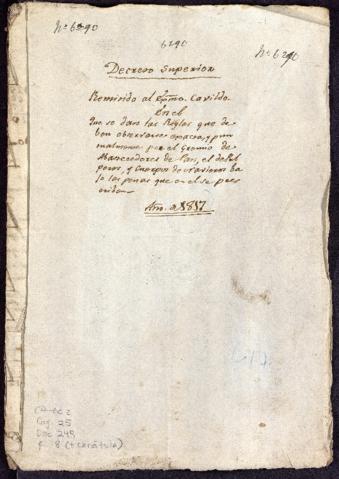 Nº 6290
6290
Nº 6290
Decreto Superior
Remitido al Exmo. Cavildo.
En el
Que se dan las Reglas que de-
ben observarse exacta, y pun-
tualmente por el Gremio de
Abastecedores de Pan, el de Pul
peros, y Cuerpos de ba
lo las penas que en el se pres
criben
Año. de 1817
CA-GC 2
Caj. 25
Doc 249
f. 8 (+ carátula)